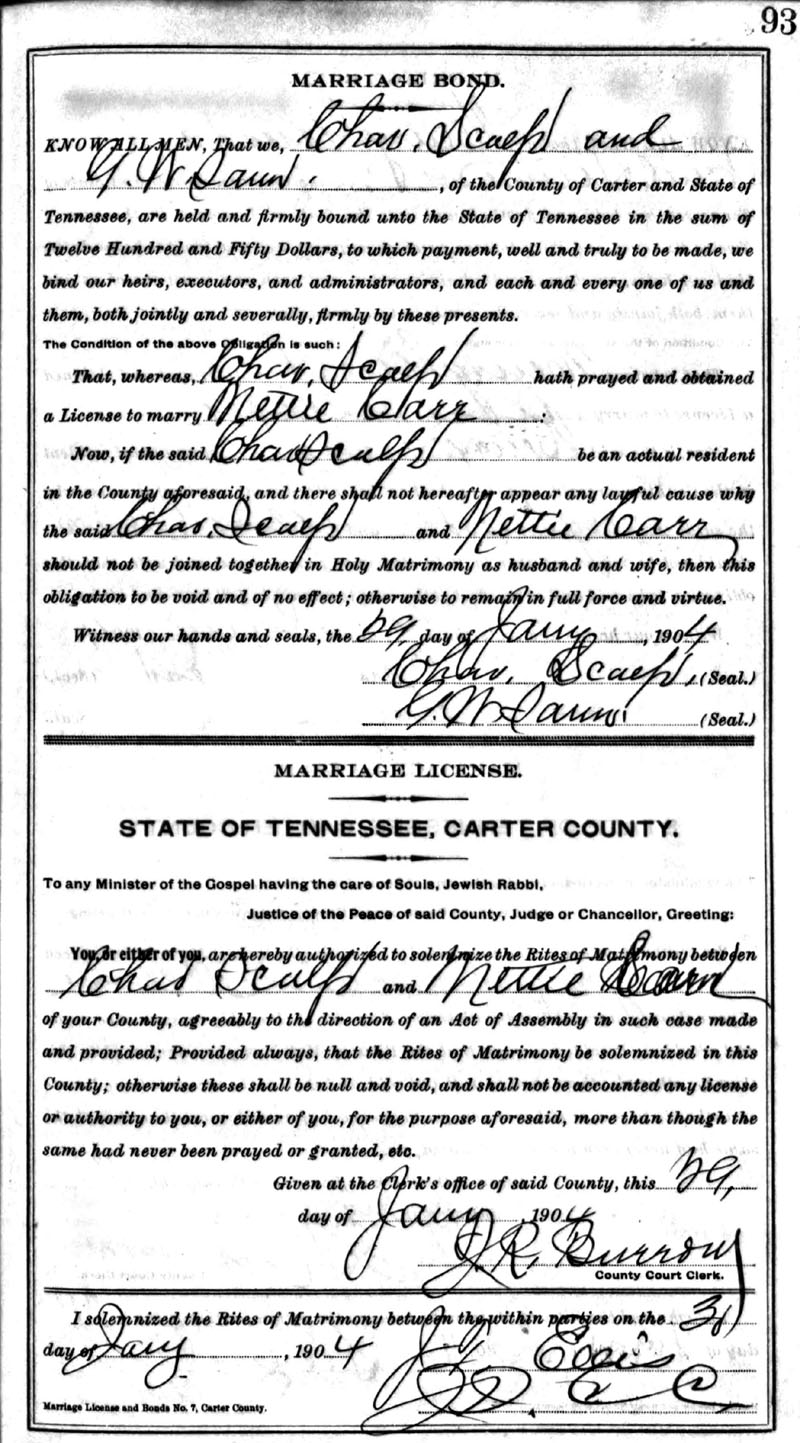 93
MARRIAGE BOND.
KNOW ALL MEN, That we, Chas. Scalf and
G. W. , of the County of Carter and State of
Tennessee, are held and firmly bound unto the State of Tennessee in the sum of
Twelve Hundred and Fifty Dollars, to which payment, well and truly to be made, we
bind our heirs, executors, and administrators, and each and every one of us and
them, both jointly and severally, firmly by these presents.
The Condition of the above Obligation is such:
That, whereas, Chas. Scalf hath prayed and obtained
a License to marry Nettie Carr :
Now, if the said Chas Scalf be an actual resident
in the County aforesaid, and there shall not hereafter appear any lawful cause why
the said Chas. Scalf and Nettie Carr
should not be joined together in Holy Matrimony as husband and wife, then this
obligation to be void and of no effect; otherwise to remain in full force and virtue.
Witness our hands and seals, the 29, day of Jany , 1904
Chas. Scalf, (Seal.)
G. W. (Seal.)
MARRIAGE LICENSE.
STATE OF TENNESSEE, CARTER COUNTY.
To any Minister of the Gospel having the care of Souls, Jewish Rabbi,
Justice of the Peace of said County, Judge or Chancellor, Greeting:
You, or either of you, are hereby authorized to solemnize the Rites of Matrimony between
Chas Scalf and Nettie Carr
of your County, agreeably to the direction of an Act of Assembly in such case made
and provided; Provided always, that the Rites of Matrimony be solemnized in this
County; otherwise these shall be null and void, and shall not be accounted any license
or authority to you, or either of you, for the purpose aforesaid, more than though the
same had never been prayed or granted, etc.
Given at the Clerk's office of said County, this 29,
day of Jany , 1904
J. R. Burrow
County Court Clerk.
I solemnized the Rites of Matrimony between the within parties on the 31
day of Jany , 1904
Marriage License and Bonds No. 7, Carter County.